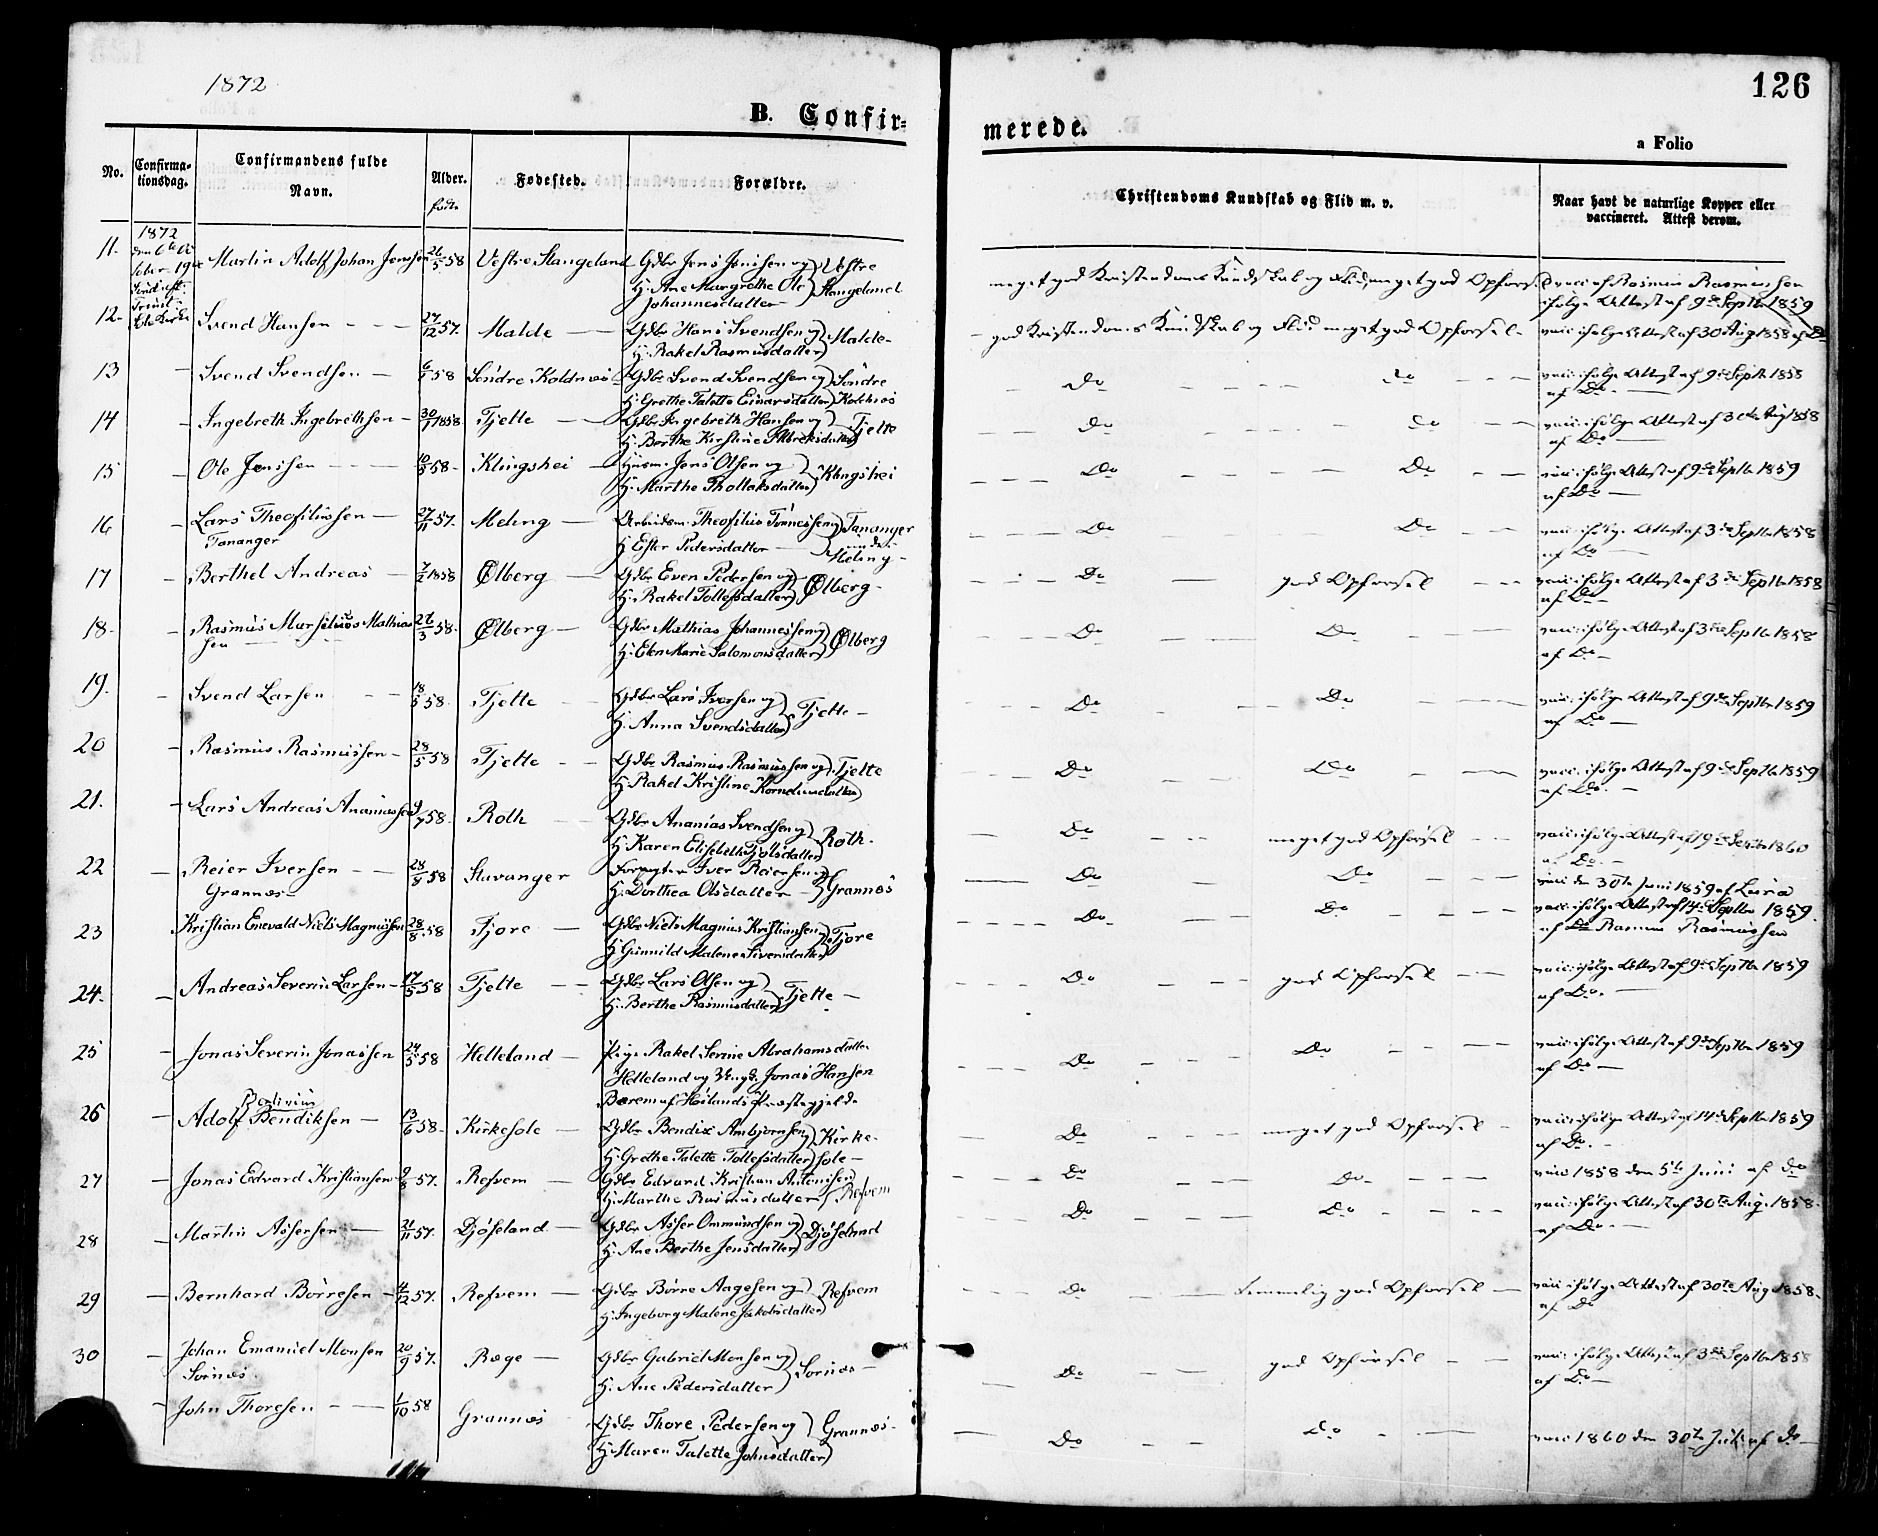 1872
126
B. Confir=
merede.
a Folio
No.
Confirma-
tionsdag.
Confirmandens fulde
Navn.
Alder.
født.
Fødested.
Forældre.
Christendoms Kundskab og Flid m. v.
Naar havt de naturlige Kopper eller
vaccineret. Attest derom.
1872
11. Martin Adolf Johan Jonsen 26/5 58 Vestre Stangeland Gdbr Jens Jonsen og Vestre
H. Ane Margrethe Ole Stangeland
Johannesdatter
meget god Kristendoms Kundskab og Flid, meget god Opførsel vacc. af Rasmus Rasmussen
ifølge Attest af 9de Septbr 1859
12. Svend Hansen 27/12 57. Malde Gdbr Hans Svendsen og Malde
H. Rakel Rasmusdatter
god Kristendoms Kundskab og Flid meget god Opførsel vacc. ifølge Attest af 30 Aug 1858 af Do
13 Svend Svendsen 58 Søndre Koldnes Gdbr Svend Svendsen og Søndre
H. Grethe Talette Einarsdatter Kolnes
Do Do vacc. ifølge Attest af 9de Septbr 1858
af Do
14 Ingebreth Ingebrethsen 30/1 1858 Tjelte Gdbr Ingebreth Hansen og Tjelte
H. Berthe Kirstine
Do Do vacc. ifølge Attest af 30te Aug 1858
af Do
15 Ole Jensen 58 Klingshei Husm. Jens Olsen og Klingshei
H. Marthe Thollaksdatter
Do Do vacc. ifølge Attest af 9de Septbr 1859
af Do
16 Lars Theofiliussen 27/11 57. Meling Arbeidsm. Theofilius Tønnessen og Tananger
Tananger
H. Ester Pedersdatter under
Meling
Do Do vacc. ifølge Attest af 3de Septbr 1858
af Do
17 Berthel Andreas 7/2 1858 Ølberg Gdbr Even Pedersen og Ølberg
H. Rakel Tollefsdatter
Do god Opførsel vacc. ifølge Attest af 3de Septbr 1858
af Do
18. Rasmus Marselius Mathias 26/3 58. Ølberg Gdbr Mathias Johannessen og Ølberg
sen
H. Elen Marie Salomonsdatter
Do Do vacc. ifølge Attest af 3de Septbr 1858
af Do
19. Svend Larsen 18/5 58. Tjelte Gdbr Lars Iversen og Tjelte
H. Anna Svendsdatter
Do Do vacc. ifølge Attest af 9de Septbr 1859
af Do
20 Rasmus Rasmussen 28/5 58 Tjelte Gdbr Rasmus Rasmussen og Tjelte
H. Rakel Kristine Korneliusdatter
Do Do vacc. ifølge Attest af 9de Septbr 1859
af Do.
21. Lars Andreas Ananiassen 58. Roth Gdbr Ananias Svendsen og Roth.
H. Karen Elisebeth Tjølsdatter
Do meget god Opførsel vacc. ifølge Attest af 19de Septbr 1860
af Do.
22 Reier Iversen 28/8 58 Stavanger Forpagter Iver Reiersen og Grannes
Grannes
H. Dorthea Olsdatter
Do Do vacc. den 30te Juni 1859 af
23 Kristian Enevald Niels Magnussen 28/8 58 Tjore Gdbr Niels Magnus Kristiansen og Tjore
H. Gunnild Malene Siversdatter
Do Do vacc. ifølge Attest af 14de Septbr 1859.
af Do Rasmus Rasmussen
24. Andreas Severin Larsen 17/5 58 Tjelte Gdbr Lars Olsen og Tjelte
H. Berthe Rasmusdatter
Do god Opførsel vacc. ifølge Attest af 9de Septbr 1859
af Do.
25 Jonas Severin Jonassen 24/5 58 Helleland Pige Rakel Serine Abrahamsdatter
Helleland og Ungk. Jonas Hansen
Bærem af Høilands Præstegjeld.
Do Do vacc. ifølge Attest af 9de Septbr 1859
af Do
26 Adolf Bendiksen 13/6 58. Kirkesole Gdbr Bendix Ambjørnsen og Kirke-
H. Grethe Talette Tollefsdatter sole
Do meget god Opførsel vacc. ifølge Attest af 14de Septbr 1859
af Do.
27 Jonas Edvard Kristiansen 57. Refvem Gdbr Edvard Kristian Antonisen
H. Marthe Rasmusdatter Refvem
Do Do vacc 1858 den 5te Juni af Do
28 Martin Assersen 21/11 57. Djøseland Gdbr Asser Ommundsen og Djøseland
H. Ane Berthe Jensdatter
Do Do vacc. ifølge Attest af 30te Aug. 1858.
af Do.
29 Bernhard Børresen 4/12 57. Refvem Gdbr Børre Aagesen og Refvem
H. Ingeborg Malene Jakobsdatter
Do temmelig god Opførsel vacc. ifølge Attest af 30te Aug 1858.
af Do
30 Johan Emanuel Monsen 20/9 57. Ræge Gdbr Gabriel Monsen og Sørnæs
Sørnæs.
H. Ane Pedersdatter
Do god Opførsel vacc. ifølge Attest af 3de Septbr 1858
af Do.
John Thoresen 1/10 58 Grannes Gdbr Thore Pedersen og Grannes
H. Maren Talette Johnsdatter
Do Do vacc 1860 den 30te Juli af Do